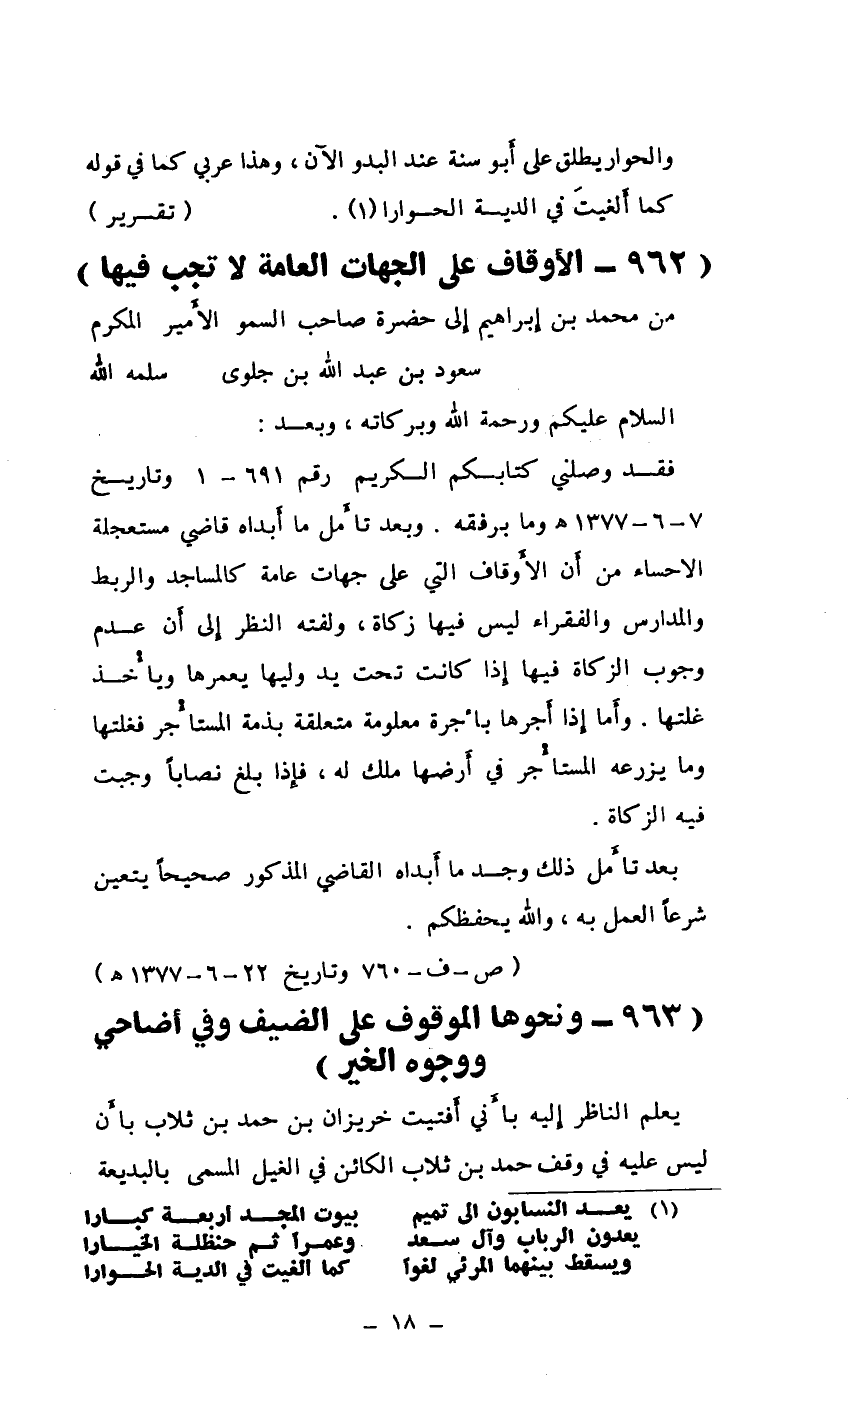 والحوار يطلق على أبو سنة عند البدو الآن ، وهذا عربي كما في قوله
كما ألغيتَ في الدية الحوارا (١) . ( تقرير )
( ٩٦٢ – الأوقاف على الجهات العامة لا تجب فيها )
من محمد بن إبراهيم إلى حضرة صاحب السمو الأمير المكرم
سعود بن عبد الله بن جلوى سلمه الله
السلام عليكم ورحمة الله وبركاته ، وبعد :
فقد وصلني كتابكم الكريم رقم ٦٩١ – ١ وتاريخ
٧–٦–١٣٧٧ هـ وما برفقه . وبعد تأمل ما أبداه قاضي مستعجلة
الاحساء من أن الأوقاف التي على جهات عامة كالمساجد والربط
والمدارس والفقراء ليس فيها زكاة ، ولفته النظر إلى أن عدم
وجوب الزكاة فيها إذا كانت تحت يد وليها يعمرها ويأخذ
غلتها . وأما إذا أجرها بأجرة معلومة متعلقة بذمة المستأجر فغلتها
وما يزرعه المستأجر في أرضها ملك له ، فإذا بلغ نصاباً وجبت
فيه الزكاة .
بعد تأمل ذلك وجد ما أبداه القاضي المذكور صحيحاً يتعين
شرعاً العمل به ، والله يحفظكم .
( ص–ف–٧٦٠ وتاريخ ٢٢–٦–١٣٧٧ هـ )
( ٩٦٣ – ونحوها الموقوف على الضيف وفي أضاحي
ووجوه الخير )
يعلم الناظر إليه بأني أفتيت خريزان بن حمد بن ثلاب بأن
ليس عليه في وقف حمد بن ثلاب الكائن في الغيل المسمى بالبديعة
(١) يعد النسابون الى تميم بيوت المجد اربعة كبارا
يعدون الرباب وآل سعد وعمراً ثم حنظلة الخيارا
ويسقط بينهما المرئي لغواً كما الغيت في الدية الحوارا
– ١٨ –